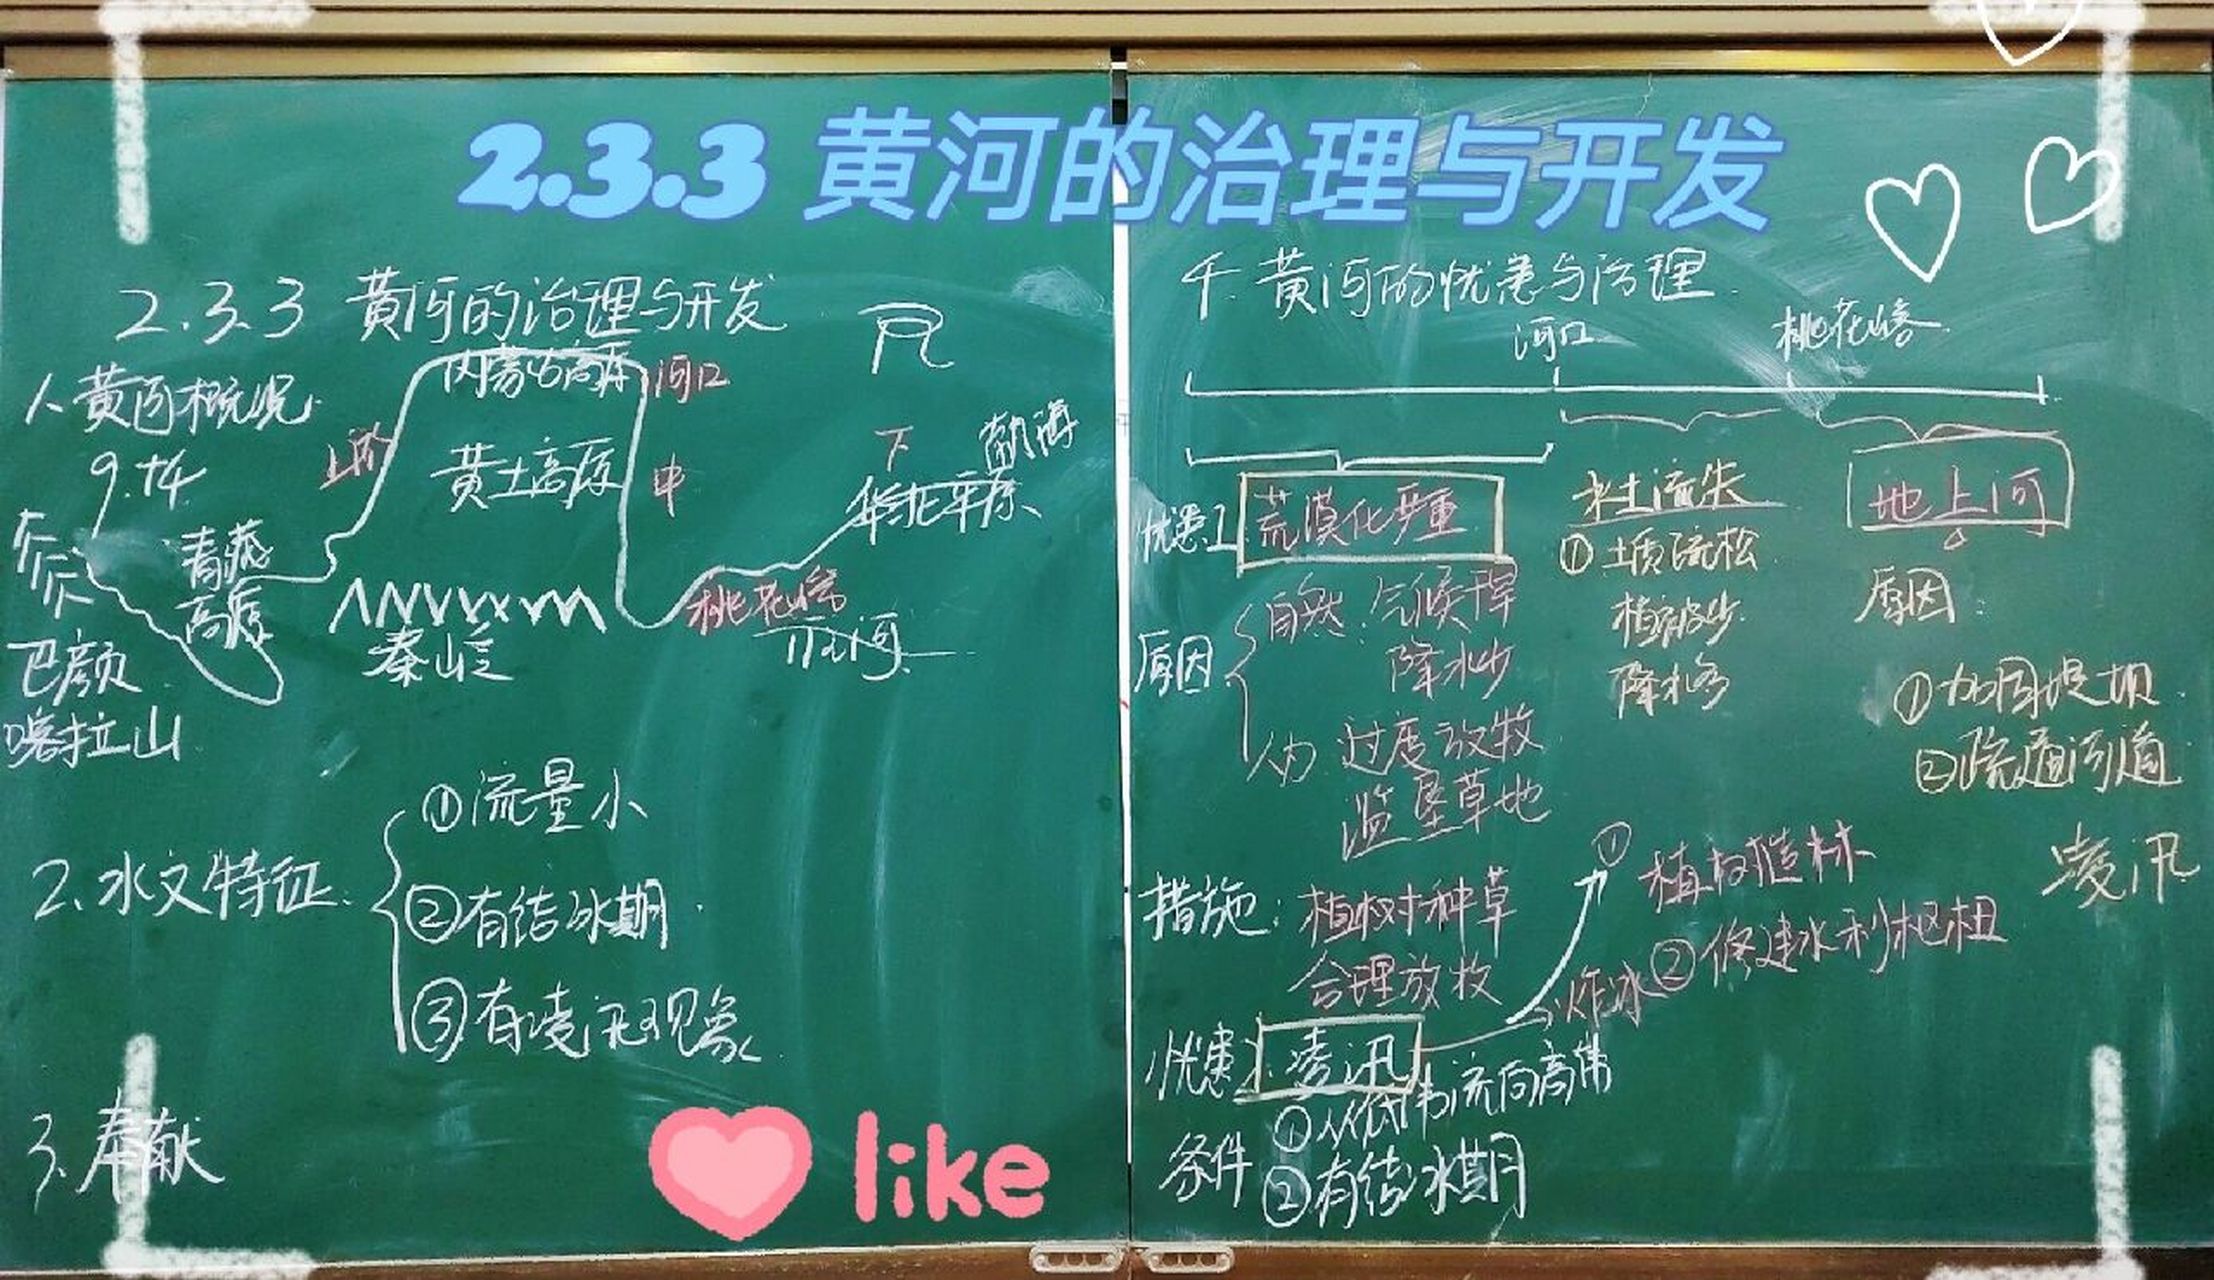 2.3.3 黄河的治理与开发
2.3.3 黄河的治理与开发
1、黄河概况
内蒙古高原
河口
上游
黄土高原
中
下
渤海
华北平原
青藏
高原
巴颜
喀拉山
秦岭
桃花峪
2、水文特征
①流量小
②有结冰期
③有凌汛现象
3、奉献
like
4. 黄河的忧患与治理
河口
桃花峪
忧患1
荒漠化严重
水土流失
地上河
①土质疏松
植被少
降水多
原因:
①加固堤坝
②疏通河道
原因
自然:气候干旱
降水少
人为 过度放牧
滥垦草地
措施:植树种草
合理放牧
①植树造林
②修建水利枢纽
凌汛
炸冰
忧患2:凌汛
条件 ①从低纬流向高纬
②有结冰期